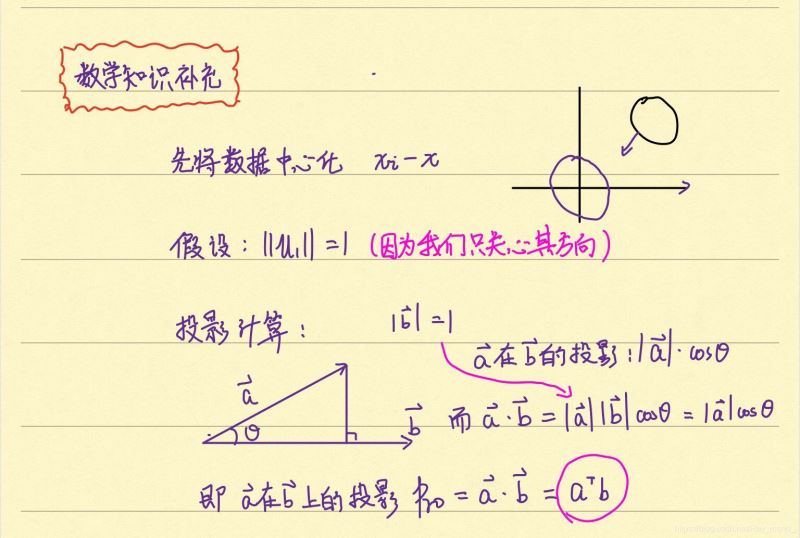 数学知识补充
先将数据中心化 xi-x
假设:||u₁||=1 (因为我们只关心其方向)
投影计算: |b⃗|=1
a⃗在b⃗的投影:|a⃗|·cosθ
a⃗
θ
b⃗
而 a⃗·b⃗=|a⃗||b⃗|cosθ=|a⃗|cosθ
即 a⃗在b⃗上的投影 = a⃗·b⃗ = aᵀb